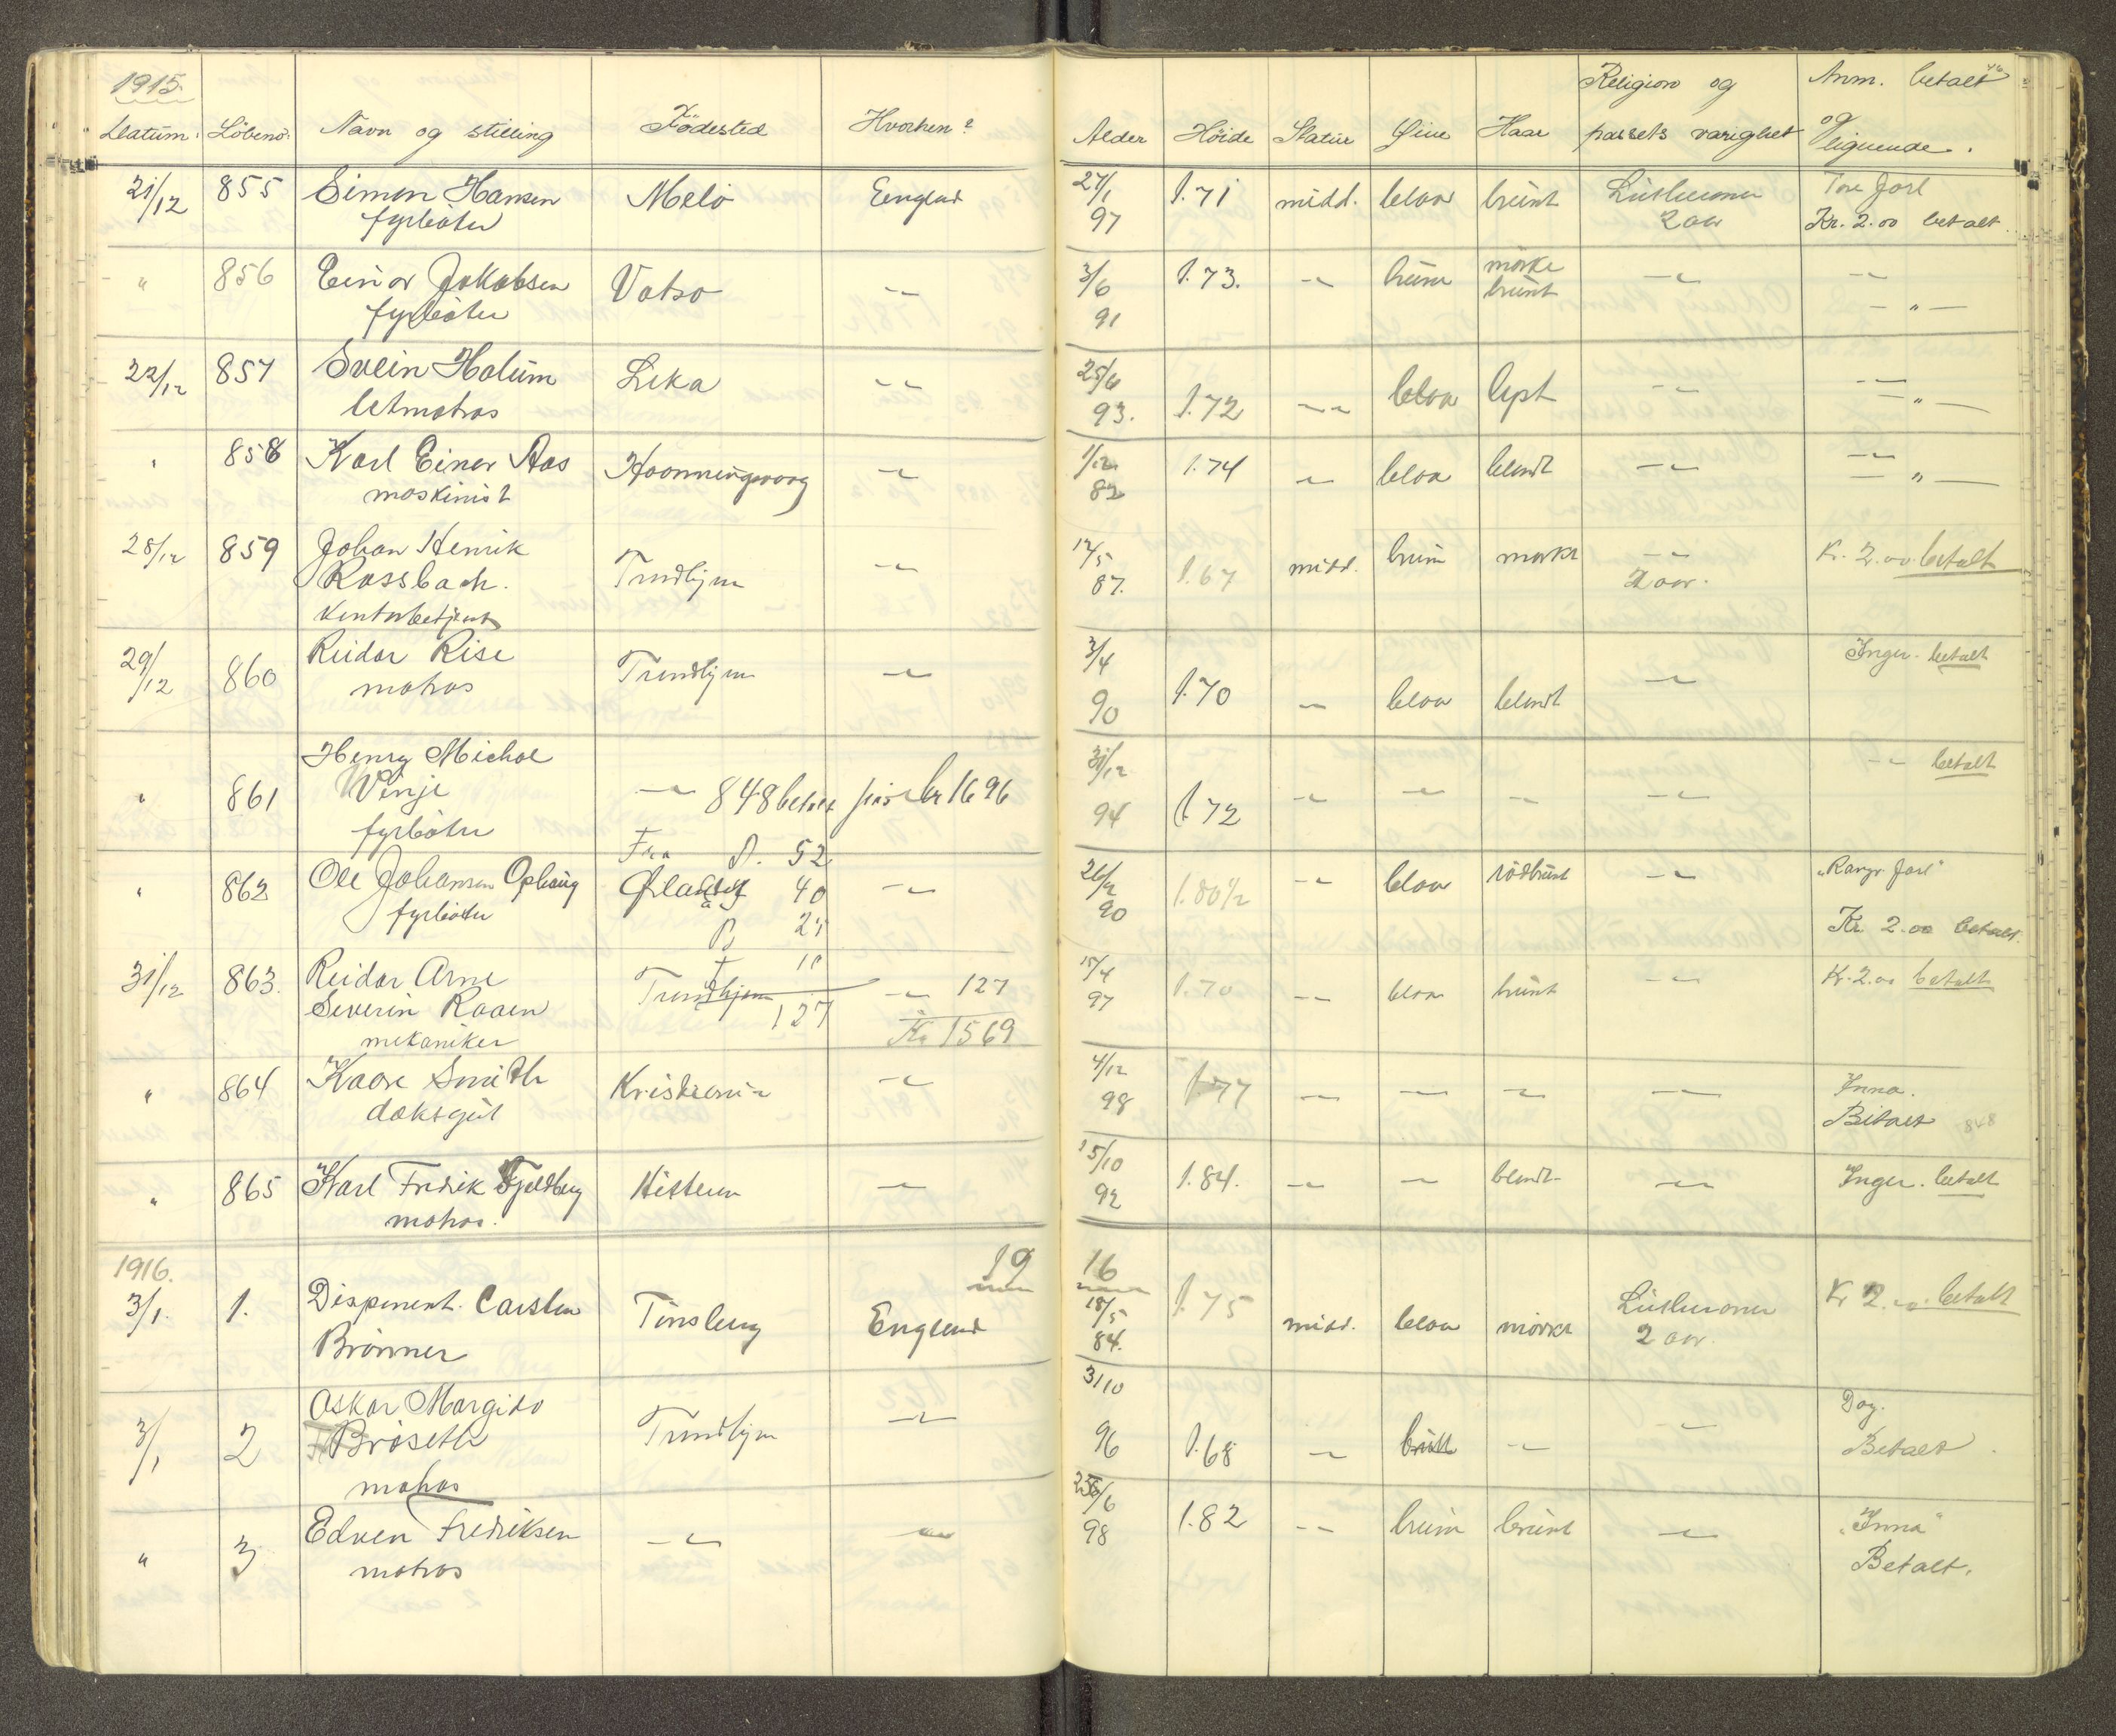 1915.
Datum. Löbeno. Navn og stilling Födested Hvorhen?
Alder Höide Statur Øine Haar Religion og passets varighet Anm. betalt og lignende.
21/12 855 Simon Hansen Melö England 27/1 97 1.71 midd. blaa brunt Lutheraner 2 aar Tore Jarl
fyrböter Kr. 2.00 betalt.
" 856 Einar Jakobsen Vatsö -"- 3/6 91 1.73. -"- brune mörke brunt -"- -"-
fyrböter - " -
22/12 857 Svein Holum Leka -"- 25/6 93. 1.72 -"- blaa lyst -"- -"-
letmatros - " -
" 858 Karl Einar Aas Honningsvaag -"- 1/12 82 1.74 -"- blaa blondt -"- -"-
maskinist - " -
28/12 859 Johan Henrik Trondhjem -"- 12/5 87. 1.67 midd. brun mörkt -"- Kr. 2.00 betalt
Rossbach. 2 aar.
Kontorbetjent
29/12 860 Reidar Rise Trondhjem -"- 3/4 90 1.70 -"- blaa blondt -"- Inger. betalt
matros
" 861 Henry Michal -"- 848 betalt pas kr 1696 31/12 94 1.72 -"- -"- -"- -"- -"- betalt
Vinje
fyrböter
Fra D. 52
" 862 Ole Johansen Ophaug Ørland 40 -"- 26/2 90 1.80 1/2 -"- blaa rödbrunt -"- "Ragv Jarl"
fyrböter B 25 Kr 2.00 betalt.
10
31/12 863. Reidar Arne Trondhjem -"- 127 15/4 97 1.70 -"- blaa brunt -"- Kr. 2.00 betalt
Severin Raaen 127 Kr 1569
mekaniker
" 864 Kaare Smith Kristiania -"- 4/12 98 1.77 -"- -"- -"- -"- Inna.
daksgut Betalt 848
" 865 Karl Fredrik Fjeldberg Hitteren -"- 15/10 92 1.84. -"- -"- blondt -"- Inger. betalt
matros.
1916. 19 16
3/1. 1. Disponent. Carsten Tönsberg England 18/5 84. 1.75 midd. blaa mörkt Lutheraner Kr 2.00 betalt
Brönner 2 aar.
3/1 2 Oskar Margido Trondhjem -"- 31/10 96 1.68 -"- -"- -"- Dag.
Bröseth Betalt.
matros
" 3 Edven Fredriksen -"- -"- 25/6 98 1.82 -"- brun brunt -"- "Inna"
matros Betalt.